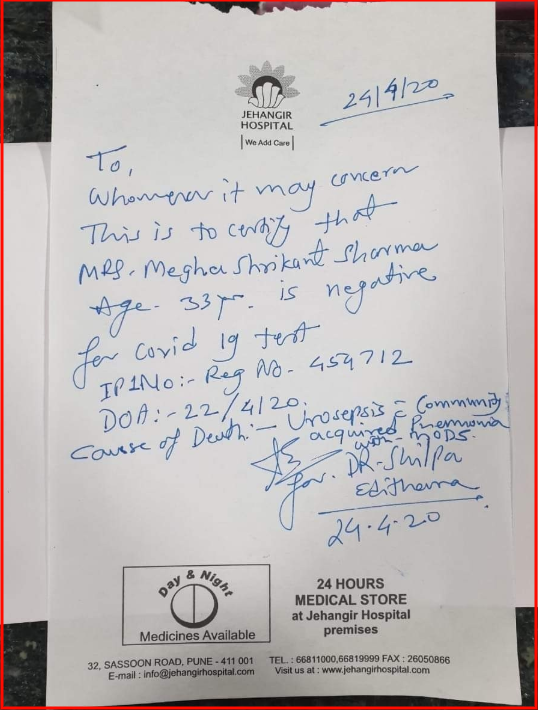 JEHANGIR
HOSPITAL
We Add Care
24/4/20
To,
Whomever it may concern
This is to certify that
MRS. Megha Shrikant Sharma
Age - 33 yr. is negative
for covid 19 test
IP1No:- Reg No. - 454712
DOA:- 22/4/20.
Causse of Death:- Urosepsis c̄ Community
acquired Pnemonia
with MODS.
for. DR. Shilpa
24.4.20
Day & Night
Medicines Available
24 HOURS
MEDICAL STORE
at Jehangir Hospital
premises
32, SASSOON ROAD, PUNE - 411 001 TEL. : 66811000,66819999 FAX : 26050866
E-mail : info@jehangirhospital.com Visit us at : www.jehangirhospital.com